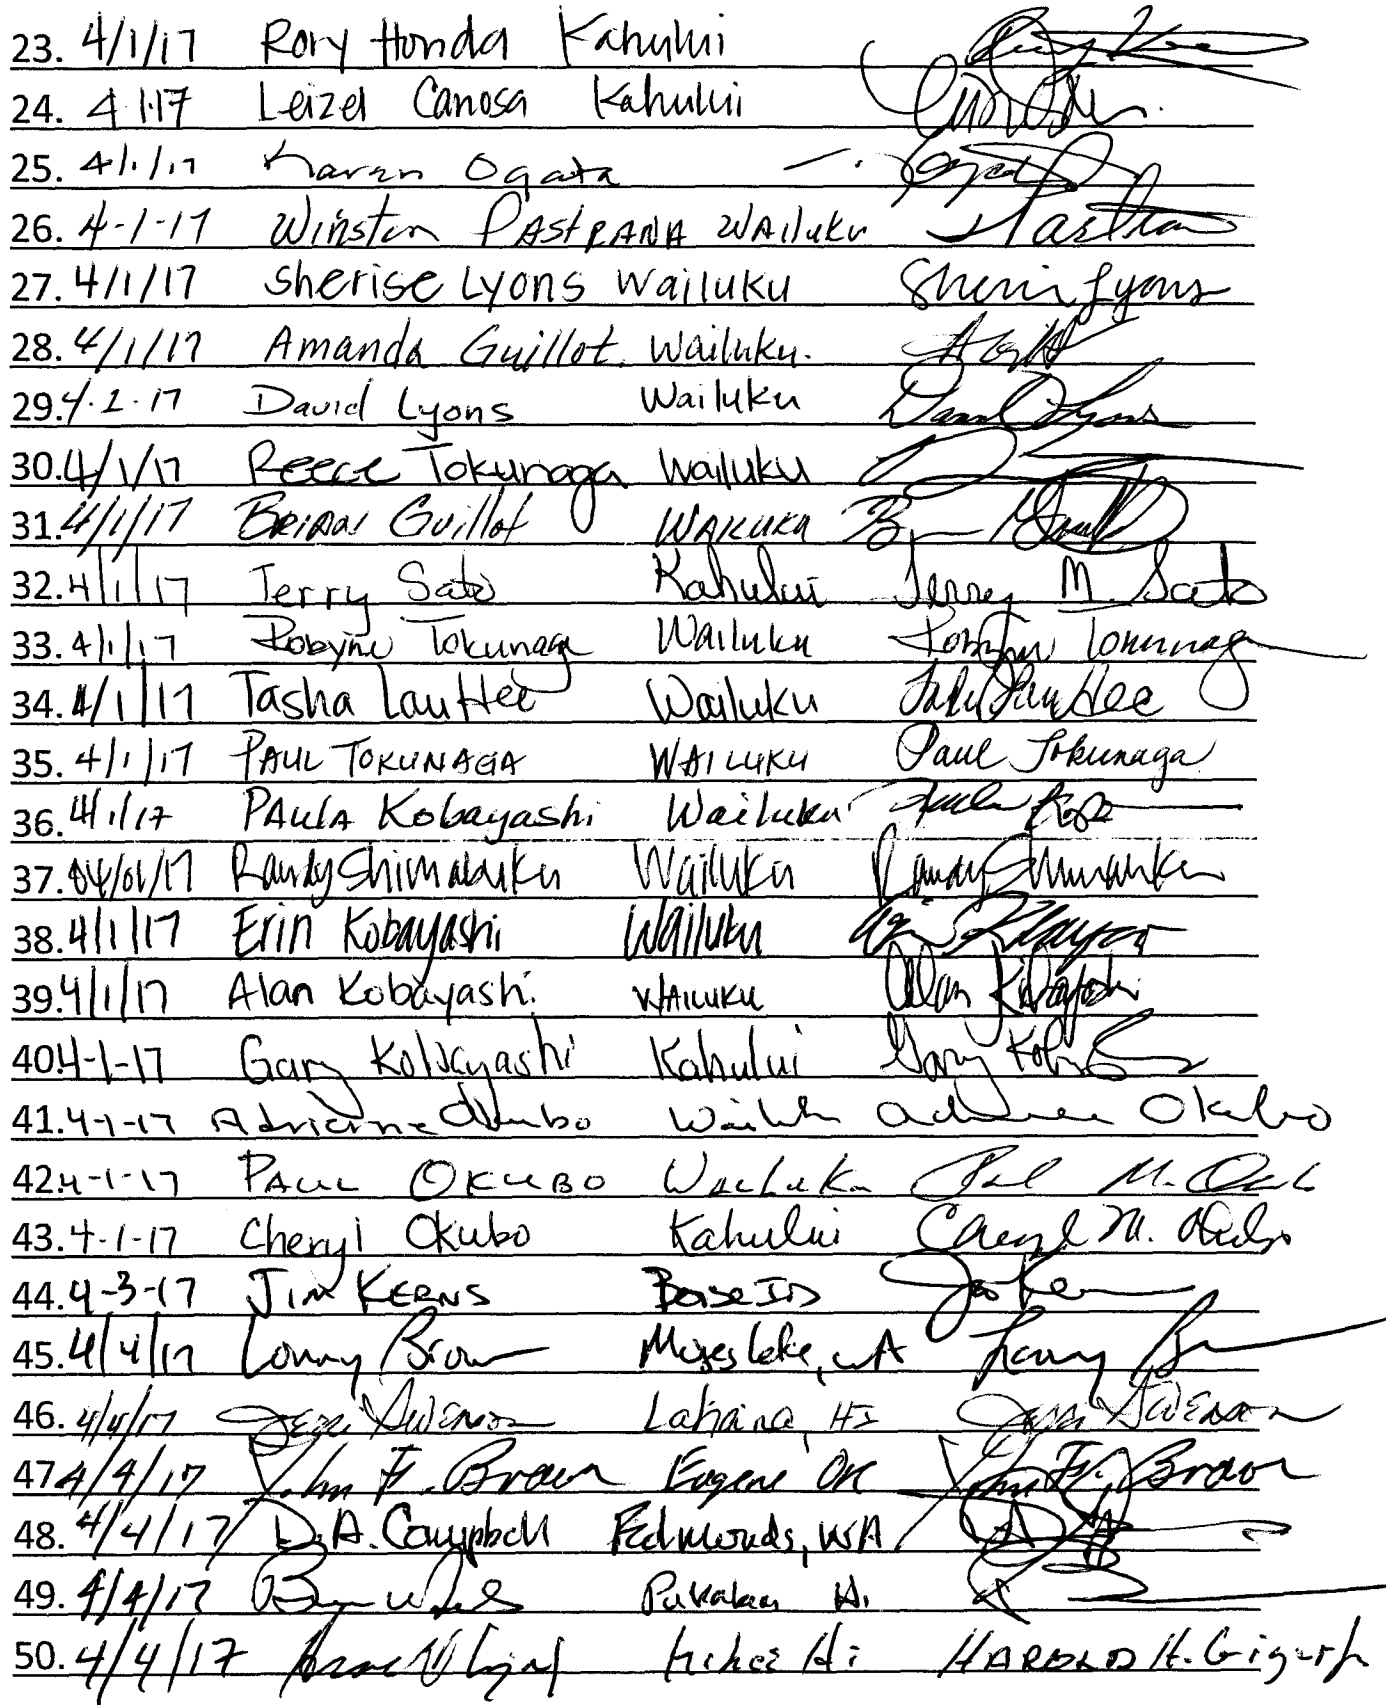 23. 4/1/17 Rory Honda Kahului
24. 4 1.17 Leizel Canosa Kahului
25. 4/1/17 Karen Ogata
26. 4-1-17 Winston PAStRANA WAIluku
27. 4/1/17 Sherise Lyons Wailuku Sheris Lyons
28. 4/1/17 Amanda Guillot. Wailuku.
29. 4.2.17 David Lyons Wailuku
30. 4/1/17 Reece Tokunaga Wailuku
31. 4/1/17 BRIAN Guillot
32. 4/1/17 Terry Sato Kahului Terry M. Sato
33. 4/1/17 Robyne Tokunaga Wailuku Tokunaga
34. 4/1/17 Tasha Lau Hee Wailuku Lau Hee
35. 4/1/17 PAUL TOKUNAGA WAILUKU Paul Tokunaga
36. 4/1/17 PAULA Kobayashi Wailuku Paula
37. 04/01/17 Randy Shimabuku Wailuku Randy
38. 4/1/17 Erin Kobayashi Wailuku
39. 4/1/17 Alan Kobayashi. WAILUKU Alan Kobayashi
40. 4-1-17 Gary Kobayashi Kahului Gary
41. 4-1-17 Adrienne Okubo Okubo
42. 4-1-17 PAUL OKUBO Wailuku Paul M.
43. 4-1-17 Cheryl Okubo Kahului Cheryl M. Okubo
44. 4-3-17 JIM KERNS Boise ID
45. 4/4/17 Lonny Brown Moses Lake, WA Lonny
46. 4/4/17 SWENSON Lahaina, HI SWENSON
47. 4/4/17 John F. Brown Eugene OR John F. Brown
48. 4/4/17 D.A. Campbell Edmonds, WA
49. 4/4/17 HI.
50. 4/4/17 Kihei Hi HAROLD H.